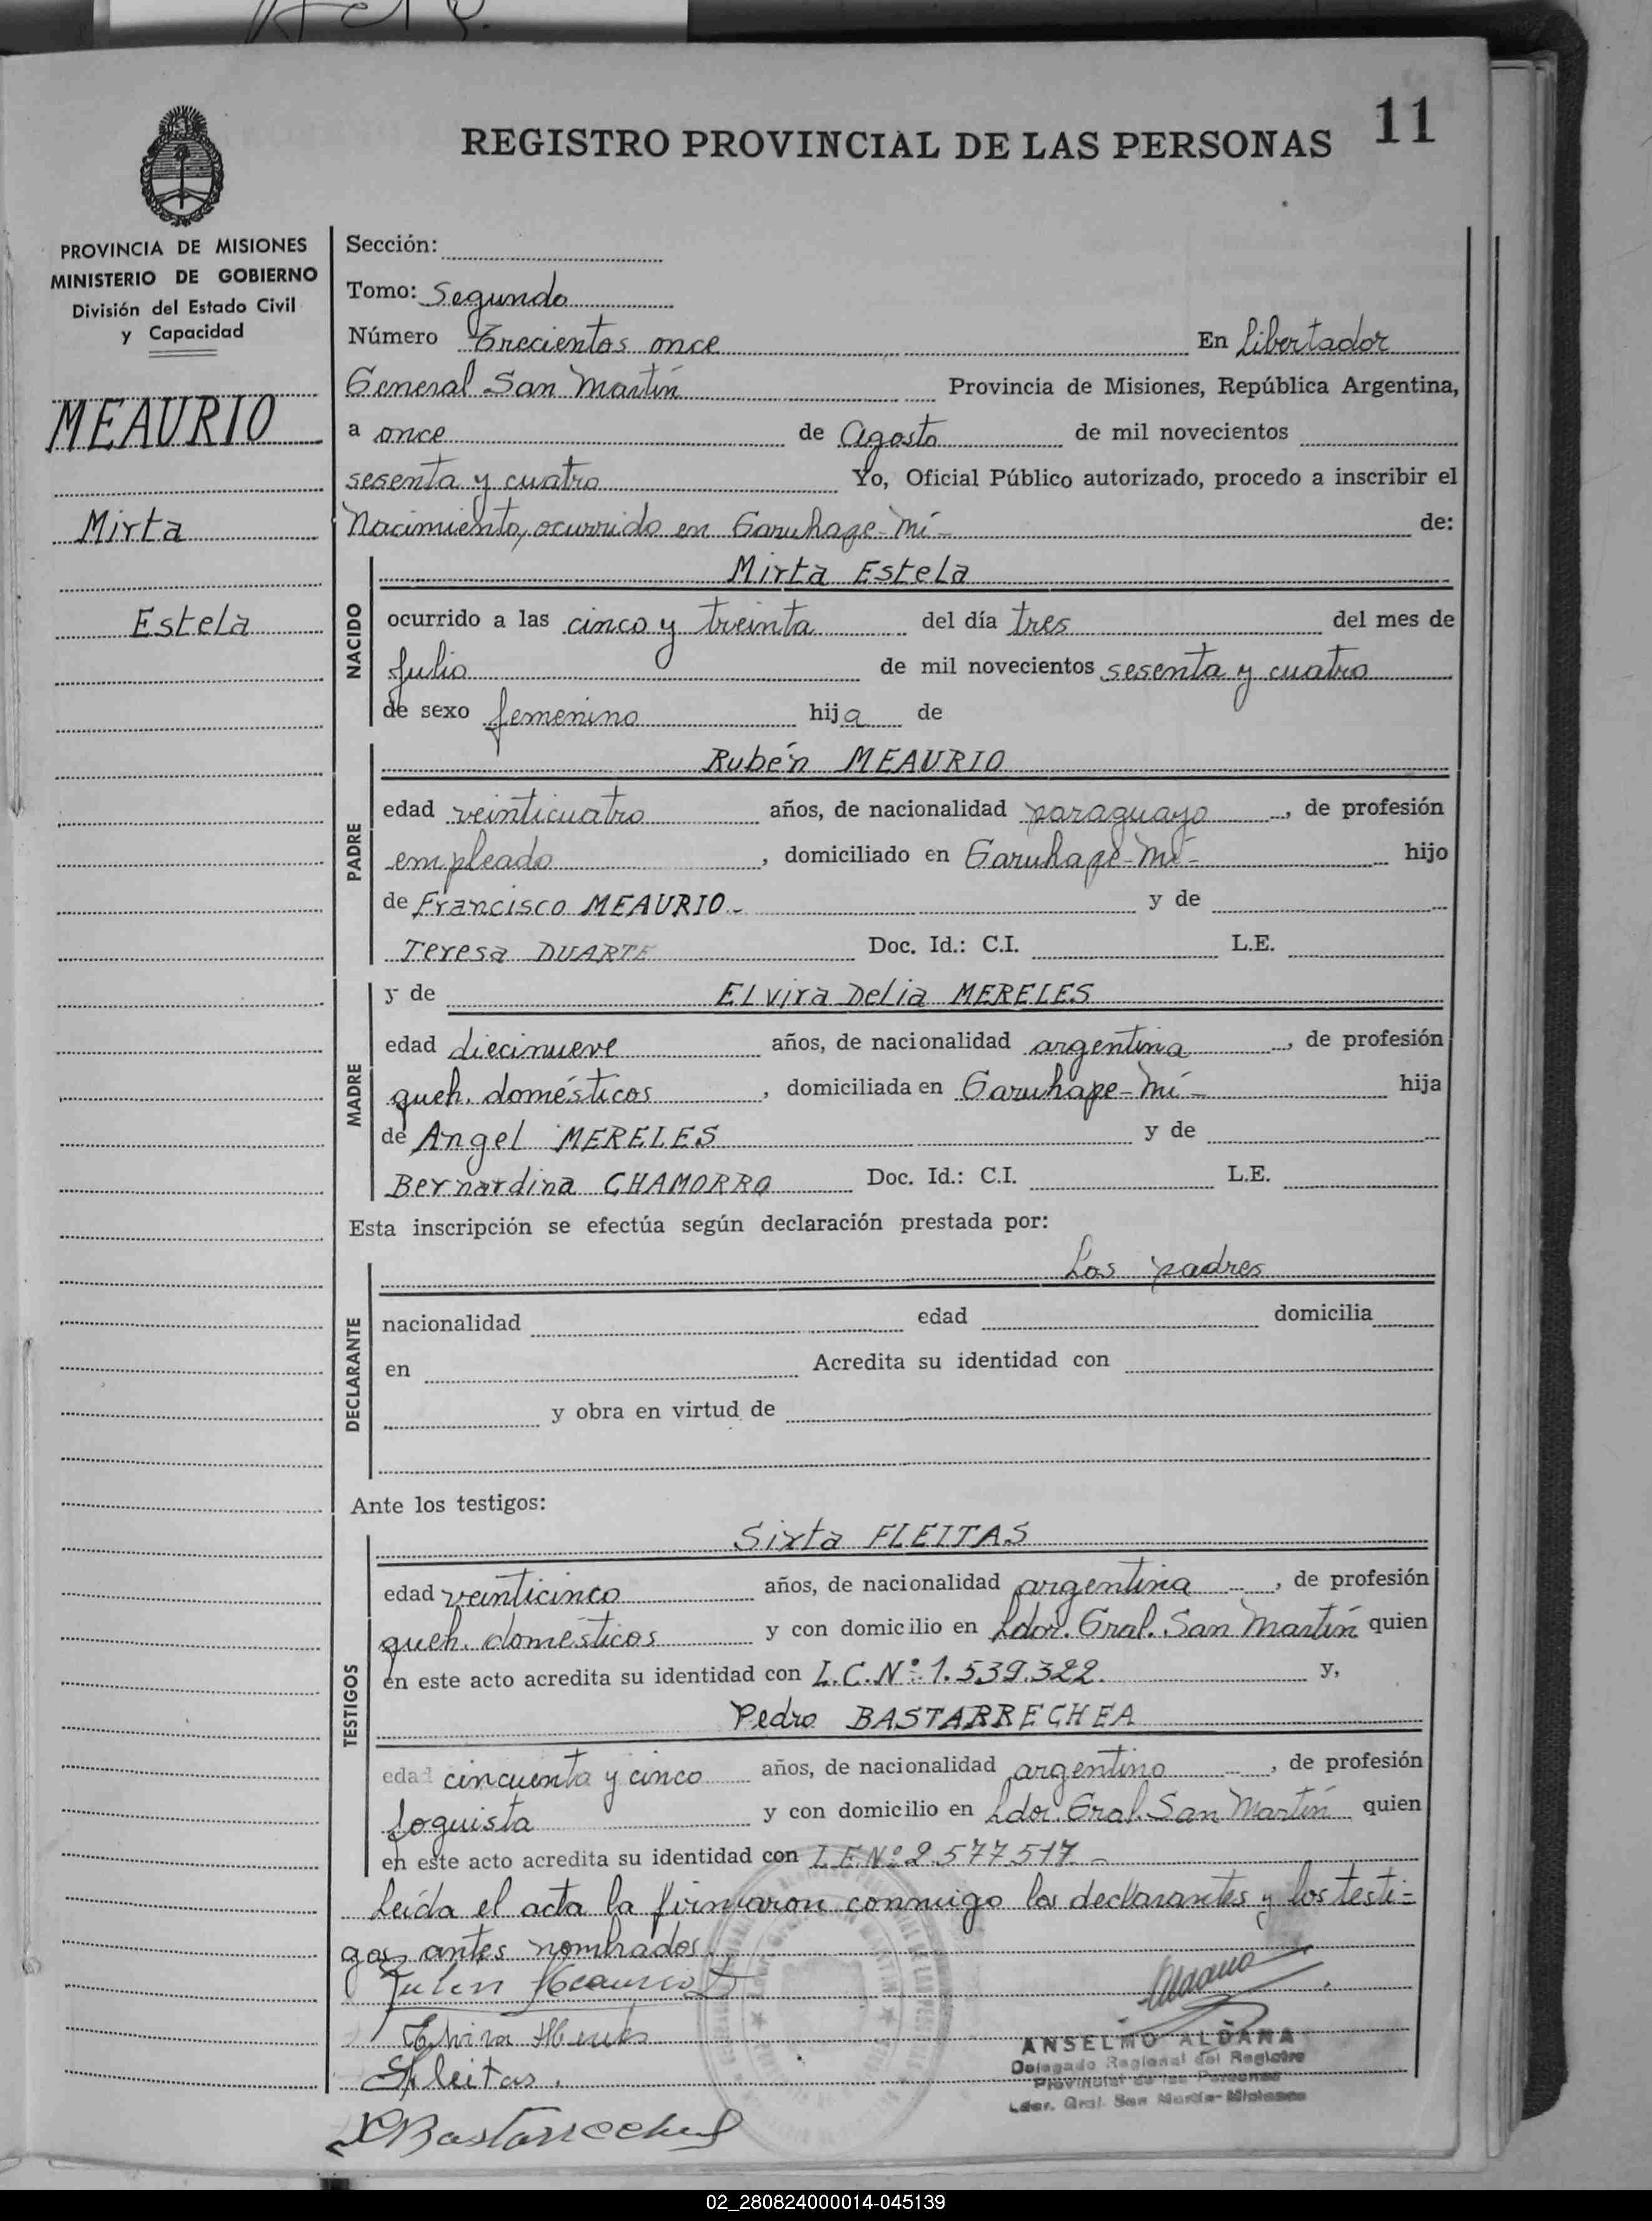 11
REGISTRO PROVINCIAL DE LAS PERSONAS
PROVINCIA DE MISIONES
MINISTERIO DE GOBIERNO
División del Estado Civil
y Capacidad
MEAURIO
Mirta
Estela
Sección:
Tomo: Segundo
Número Trecientos once En Libertador
General San Martín Provincia de Misiones, República Argentina,
a once de Agosto de mil novecientos
sesenta y cuatro Yo, Oficial Público autorizado, procedo a inscribir el
Nacimiento, ocurrido en Garuhape-Mí- de:
NACIDO
Mirta Estela
ocurrido a las cinco y treinta del día tres del mes de
Julio de mil novecientos sesenta y cuatro
de sexo femenino hija de
PADRE
Rubén MEAURIO
edad veinticuatro años, de nacionalidad paraguayo, de profesión
empleado, domiciliado en Garuhapé-Mí- hijo
de Francisco MEAURIO.- y de
Teresa DUARTE Doc. Id.: C.I. L.E.
MADRE
y de Elvira Delia MERELES
edad diecinueve años, de nacionalidad argentina, de profesión
queh. domésticos, domiciliada en Garuhape-Mí- hija
de Angel MERELES y de
Bernardina CHAMORRO Doc. Id.: C.I. L.E.
Esta inscripción se efectúa según declaración prestada por:
DECLARANTE
Los padres
nacionalidad edad domicilia
en Acredita su identidad con
y obra en virtud de
Ante los testigos:
TESTIGOS
Sixta FLEITAS
edad veinticinco años, de nacionalidad argentina, de profesión
queh. domésticos y con domicilio en Ldor. Gral. San Martín quien
en este acto acredita su identidad con L.C.Nº 1.539.322. y,
Pedro BASTARRECHEA
edad cincuenta y cinco años, de nacionalidad argentino, de profesión
foguista y con domicilio en Ldor. Gral. San Martín quien
en este acto acredita su identidad con L.E.Nº 2.577.517.-
Leída el acta la firmaron conmigo los declarantes y los testi-
gos antes nombrados.
Elvira
SFleitas.
PBastarrechea
ANSELMO ALDANA
Delegado Regional del Registro
Provincial de las Personas
Ldor. Gral. San Martín-Misiones
02_280824000014-045139